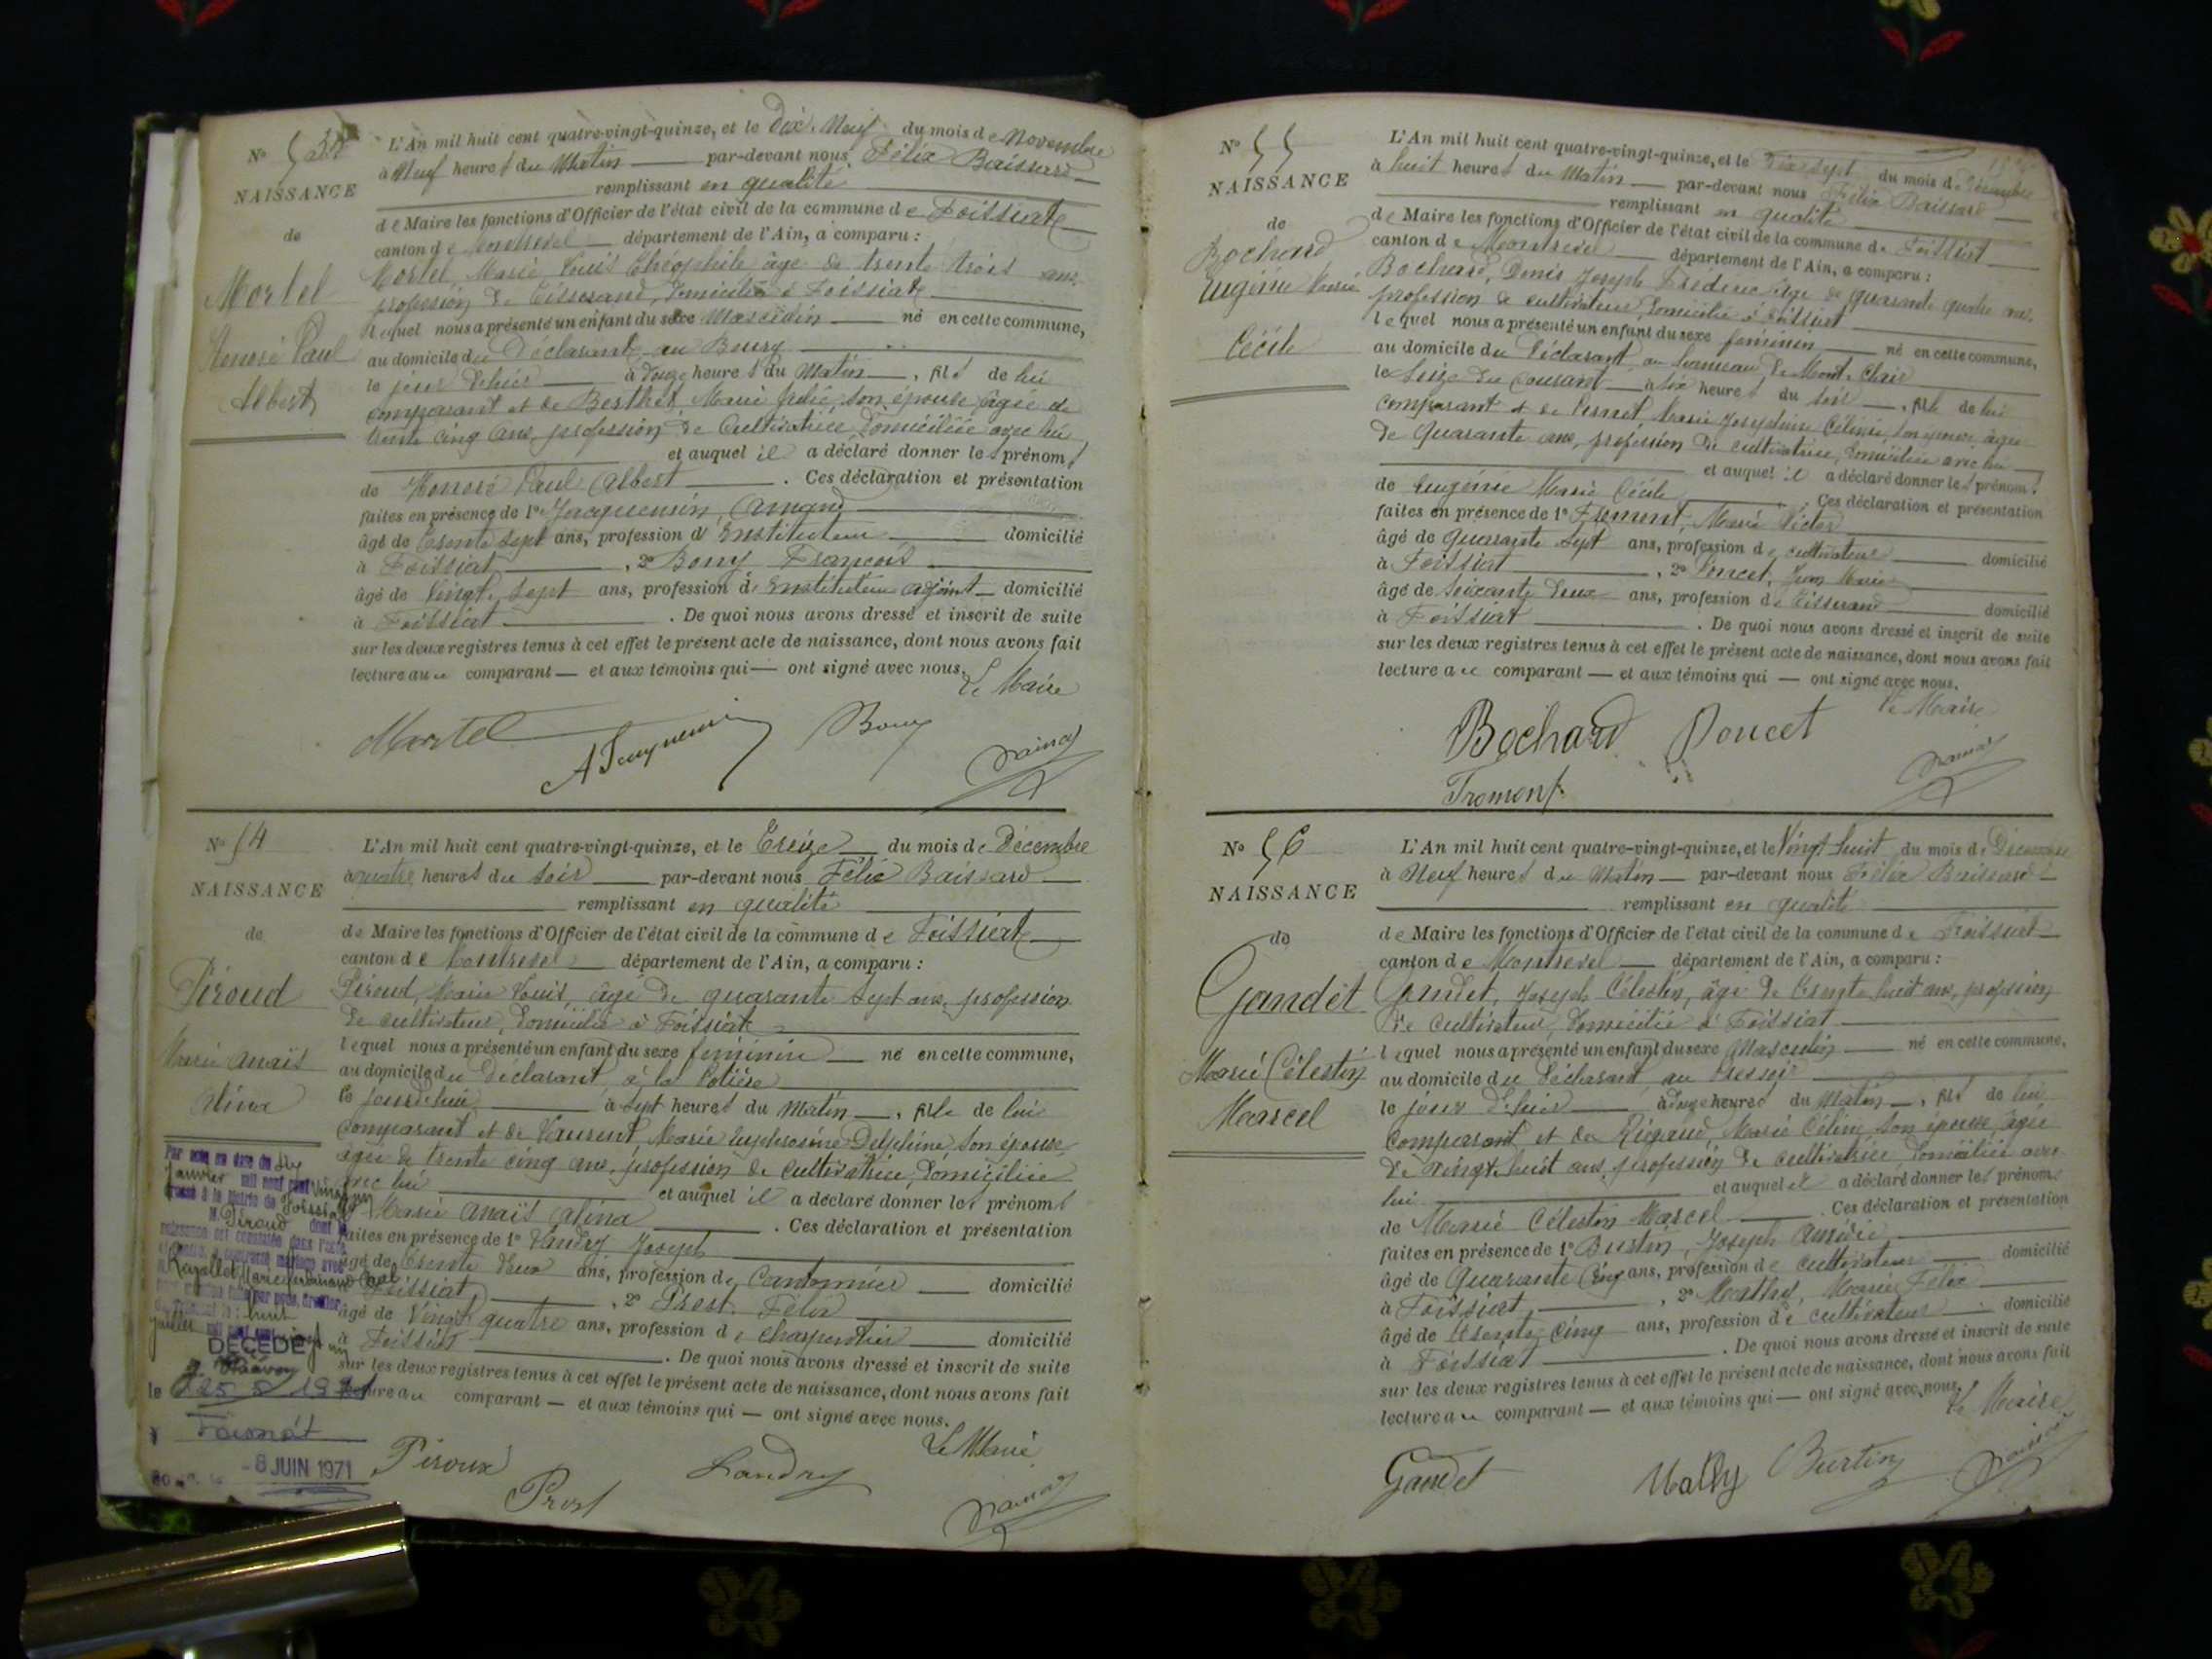 No 53
NAISSANCE
de
Mortel
Honoré Paul
Albert
L'An mil huit cent quatre-vingt-quinze, et le Dix-Neuf du mois de Novembre
à Neuf heures du Matin — par-devant nous Félix Baissard
remplissant en qualité
de Maire les fonctions d'Officier de l'état civil de la commune de Foissiat
canton de Montrevel — département de l'Ain, a comparu :
Mortel Marie Louis Théophile âgé de trente trois ans,
profession de Tisserand, domicilié à Foissiat
lequel nous a présenté un enfant du sexe Masculin — né en cette commune,
au domicile du Déclarant au Bourg
le jour d'hier — à heures du Matin —, fils de lui
comparant et de Berthet Marie Julie, son épouse âgée de
trente cinq ans, profession de Cultivatrice, domiciliée avec lui
et auquel il a déclaré donner les prénoms
de Honoré Paul Albert — . Ces déclaration et présentation
faites en présence de 1o Jacquemin, Amand
âgé de Trente sept ans, profession d'Instituteur — domicilié
à Foissiat — , 2o Bony François
âgé de Vingt-sept ans, profession de Instituteur adjoint — domicilié
à Foissiat — . De quoi nous avons dressé et inscrit de suite
sur les deux registres tenus à cet effet le présent acte de naissance, dont nous avons fait
lecture au comparant — et aux témoins qui — ont signé avec nous.
Le Maire
Martel
Bony
No 54
NAISSANCE
de
Piroud
Marie Anaïs
Alina
L'An mil huit cent quatre-vingt-quinze, et le Treize — du mois de Décembre
à quatre heures du soir — par-devant nous Félix Baissard
remplissant en qualité
de Maire les fonctions d'Officier de l'état civil de la commune de Foissiat
canton de Montrevel — département de l'Ain, a comparu :
Piroud, Marie Louis, âgé de quarante sept ans, profession
de cultivateur, domicilié à Foissiat
lequel nous a présenté un enfant du sexe féminin — né en cette commune,
au domicile du Déclarant, à la Potière
le jourd'hui — à sept heures du Matin —, fille de lui
comparant et de Vaurent, Marie Euphrosine Delphine, son épouse
âgée de trente cinq ans, profession de cultivatrice, domiciliée
avec lui — et auquel il a déclaré donner les prénoms
Marie Anaïs Alina — . Ces déclaration et présentation
faites en présence de 1o Landry Joseph
âgé de Trente deux ans, profession de Cantonnier — domicilié
à Foissiat — , 2o Prost Félix
âgé de Vingt quatre ans, profession de Charpentier — domicilié
à Foissiat — . De quoi nous avons dressé et inscrit de suite
sur les deux registres tenus à cet effet le présent acte de naissance, dont nous avons fait
lecture au comparant — et aux témoins qui — ont signé avec nous.
Le Maire
Piroux
Prost
Landry
DÉCÉDÉ
le 25 5 1971
-8 JUIN 1971
No 55
NAISSANCE
de
Bochard
Eugénie Marie
Cécile
L'An mil huit cent quatre-vingt-quinze, et le Dix sept du mois de Décembre
à huit heures du Matin — par-devant nous Félix Baissard
remplissant en qualité
de Maire les fonctions d'Officier de l'état civil de la commune de Foissiat
canton de Montrevel — département de l'Ain, a comparu :
Bochard, Denis Joseph Frédéric, âgé de quarante quatre ans,
profession de cultivateur, domicilié à Foissiat
lequel nous a présenté un enfant du sexe féminin — né en cette commune,
au domicile du Déclarant, au hameau de Mont-Clair
le Seize du Courant — à six heures du soir —, fille de lui
comparant et de Marie Joséphine Célinie, son épouse, âgée
de Quarante ans, profession de cultivatrice, domiciliée avec lui
et auquel il a déclaré donner les prénoms
de Eugénie Marie Cécile — . Ces déclaration et présentation
faites en présence de 1o Froment, Marie Victor
âgé de Quarante sept ans, profession de cultivateur — domicilié
à Foissiat — , 2o Poncet, Jean Marie
âgé de Soixante deux ans, profession de Tisserand — domicilié
à Foissiat — . De quoi nous avons dressé et inscrit de suite
sur les deux registres tenus à cet effet le présent acte de naissance, dont nous avons fait
lecture au comparant — et aux témoins qui — ont signé avec nous.
Le Maire
Bochard Poncet
Fromont
No 56
NAISSANCE
de
Gandet
Marie Célestin
Marcel
L'An mil huit cent quatre-vingt-quinze, et le Vingt huit du mois de Décembre
à Neuf heures du Matin — par-devant nous Félix Baissard
remplissant en qualité
de Maire les fonctions d'Officier de l'état civil de la commune de Foissiat
canton de Montrevel — département de l'Ain, a comparu :
Gandet, Joseph Célestin, âgé de Trente huit ans, profession
de Cultivateur, domicilié à Foissiat
lequel nous a présenté un enfant du sexe Masculin — né en cette commune,
au domicile du Déclarant, au Pressoir
le jour d'hier — à heures du Matin —, fils de lui
comparant et de Rigaud Marie Céline, son épouse, âgée
de vingt-huit ans, profession de cultivatrice, domiciliée avec
lui — et auquel il a déclaré donner les prénoms
de Marie Célestin Marcel — . Ces déclaration et présentation
faites en présence de 1o Burtin, Joseph Amédée
âgé de Quarante Cinq ans, profession de cultivateur — domicilié
à Foissiat, — , 2o Mathy, Marie Félix
âgé de Trente cinq ans, profession de cultivateur — domicilié
à Foissiat — . De quoi nous avons dressé et inscrit de suite
sur les deux registres tenus à cet effet le présent acte de naissance, dont nous avons fait
lecture au comparant — et aux témoins qui — ont signé avec nous.
Le Maire
Gandet
Mathy Burtin